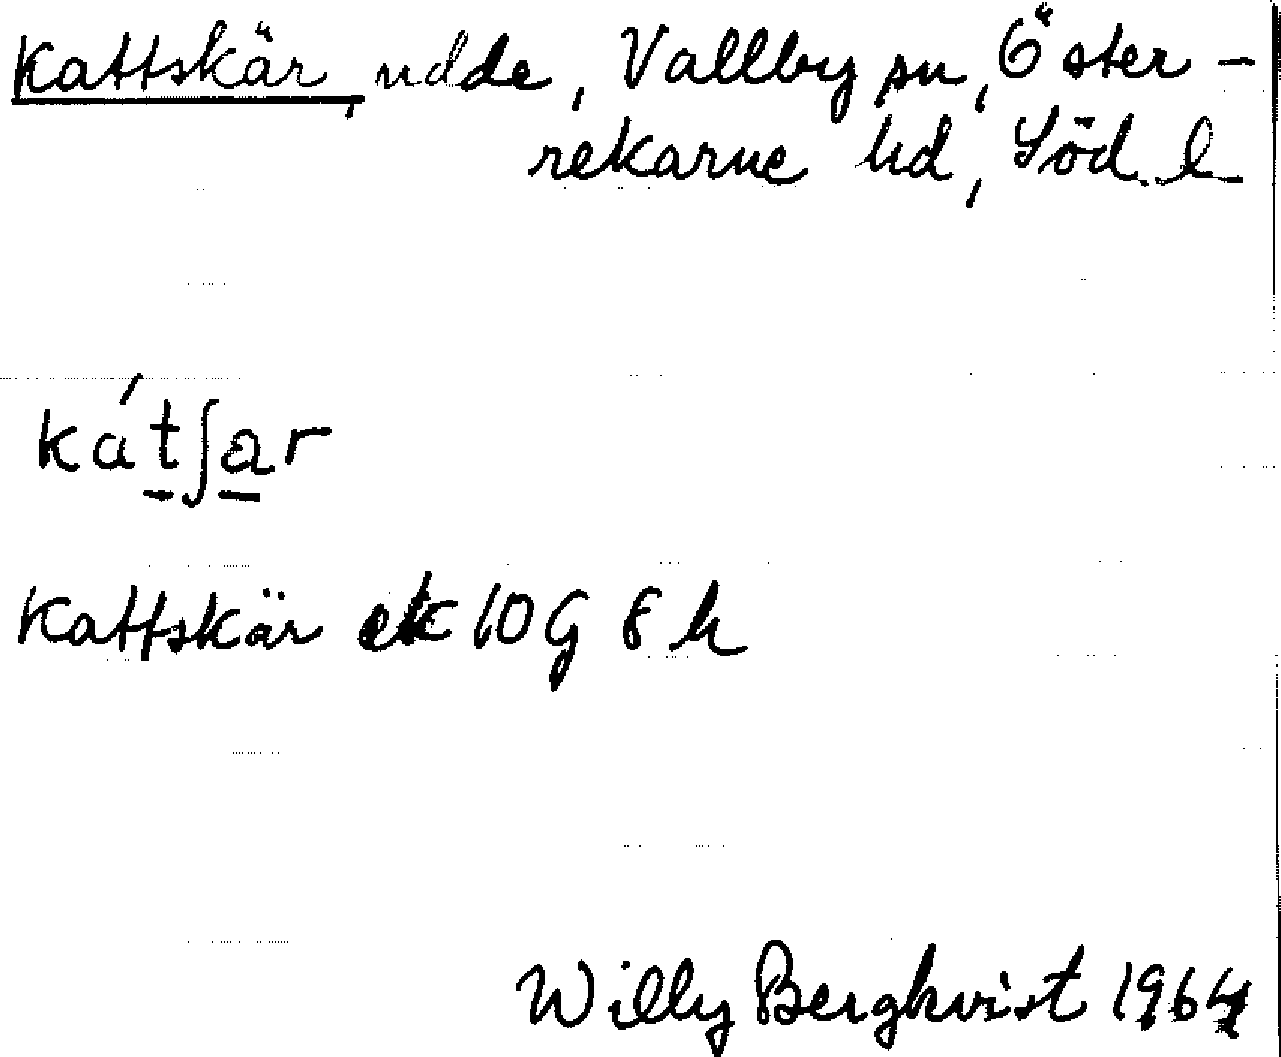 Kattskär, udde, Vallby sn, Öster-
rekarne hd, Söd. l
ká̱tʃa̱r
Kattskär ek 10G 8h
Willy Bergkvist 1964